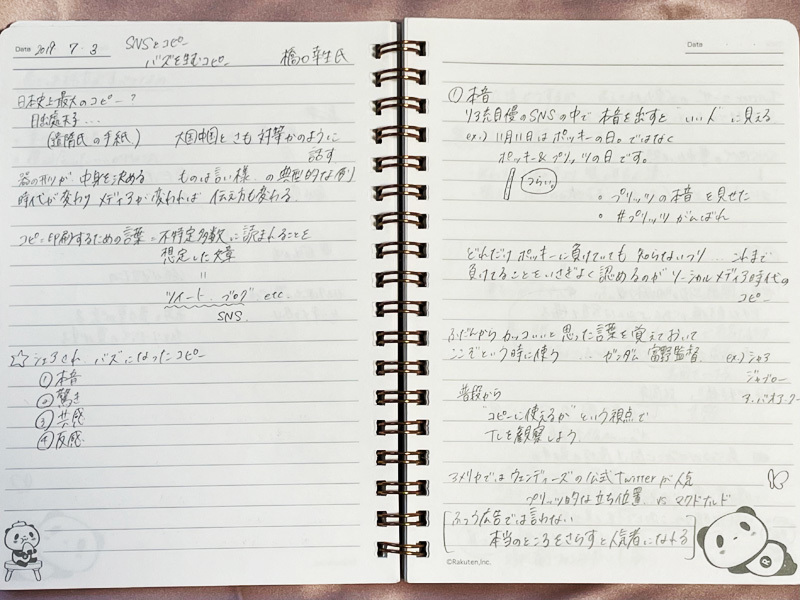 Date 2019 7 3
SNSとコピー
バズを生むコピー 橋口幸生氏
日本史上最大のコピー?
日出處天子...
(遣隋氏の手紙) 大国中国とさも対等かのように
話す
器の形が中身を決める ものは言い様 の典型的な例
時代が変わりメディアが変われば伝え方も変わる.
コピー:印刷するための言葉=不特定多数に読まれることを
想定した文章
〃
ツイート、ブログ etc
SNS.
☆シェアされ バズになったコピー
①本音
②驚き
③共感
④反感
Date
①本音
リア充自慢のSNSの中で本音を出すと"いい人"に見える
ex.) 11月11日はポッキーの日。ではなく
ポッキー&プリッツの日です。
つらい。
・プリッツの本音を見せた
・#プリッツがんばれ
どんだけポッキーに負けていても知らないフリ...これまで
負けてることをいさぎよく認めるのがソーシャルメディア時代の
コピー
ふだんからカッコいいと思った言葉を覚えておいて
ここぞという時に使う... ガンダム 富野監督. ex.)シャア
ジャブロー
ア・バオア・クー
普段から
"コピーに使えるか"という視点で
TLを観察しよう.
アメリカではウェンディーズの公式Twitterが人気
プリッツ的な立ち位置 vs マクドナルド
ふつう広告では言わない
本当のところをさらすと人気者になれる
©Rakuten,Inc.
R